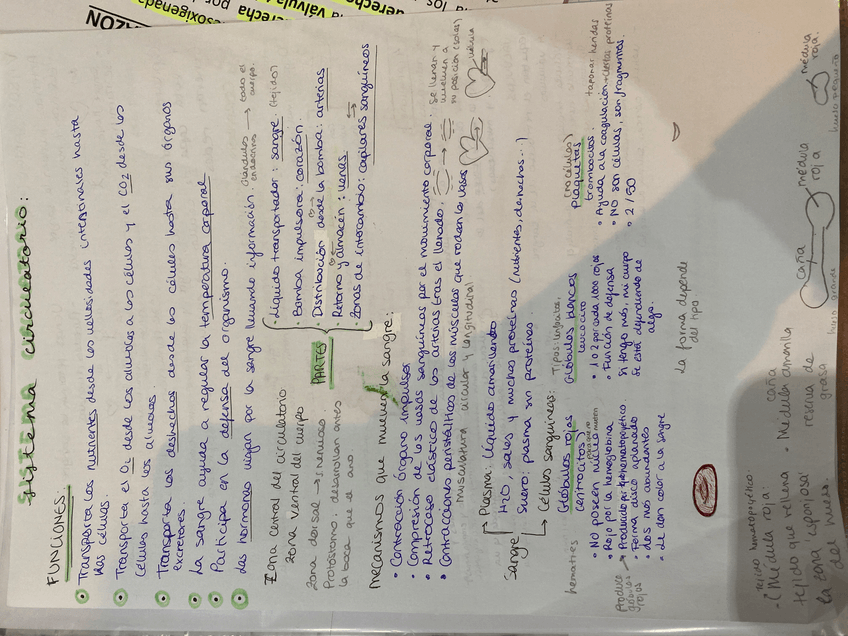 Sistema circulatorio:
FUNCIONES:
Transporta los nutrientes desde las vellosidades intestinales hasta
las células.
Transporta el O2 desde los alveolos a las células y el CO2 desde las
células hasta los alveolos.
Transporta los deshechos desde las células hasta sus órganos
excretores.
La sangre ayuda a regular la temperatura corporal
Participa en la defensa del organismo.
Las hormonas viajan por la sangre llevando información → todo el
cuerpo.
Glándulas
endocrinas
Zona central del circulatorio
zona ventral del cuerpo
zona dorsal → S. nervioso
Protostomo: desarrollan antes
la boca que el ano
PARTES
• Líquido transportador: sangre (tejido)
• Bomba impulsora: corazón.
• Distribución desde la bomba: arterias
• Retorno y almacén: venas
• Zonas de intercambio: capilares sanguíneos
Mecanismos que mueven la sangre:
• Contracción órgano impulsor
• Compresión de los vasos sanguíneos por el movimiento corporal.
• Retroceso elástico de las arterias tras el llenado.
Se llenan y
vuelven a
su posición (solas)
• Contracciones peristálticas de los músculos que rodean los vasos
musculatura circular y longitudinal
válvula
Sangre
→ Plasma: líquido amarillento
H2O, sales y muchas proteínas (nutrientes, deshechos...)
Suero: plasma sin proteínas
→ Células sanguíneas:
hematíes
Glóbulos rojos
(eritrocitos)
• NO poseen núcleo
• Rojo por la hemoglobina
• Producido por tejido hematopoyético
Produce
glóbulos
rojos
• Forma disco aplanado
• Los más abundantes
• Le dan color a la sangre
Tipos: linfocitos,
Glóbulos blancos
leucocito
• 1 o 2 por cada 1000 rojos
• Función de defensa
Si tengo más, mi cuerpo
se está defendiendo de
algo.
La forma depende
del tipo.
(no células)
Plaquetas
trombocitos
taponar heridas
• Ayuda a la coagulación + ciertas proteínas
• NO son células, son fragmentos.
• 2/50
tejido hematopoyético
- (Médula roja:
tejido que rellena
la zona "esponjosa"
del hueso.
caña
• Médula amarilla
reserva de
grasa
caña
médula
roja
hueso grande
médula
roja.
hueso pequeño
CORAZÓN
desoxigenada
derecha por
la válvula
derecha